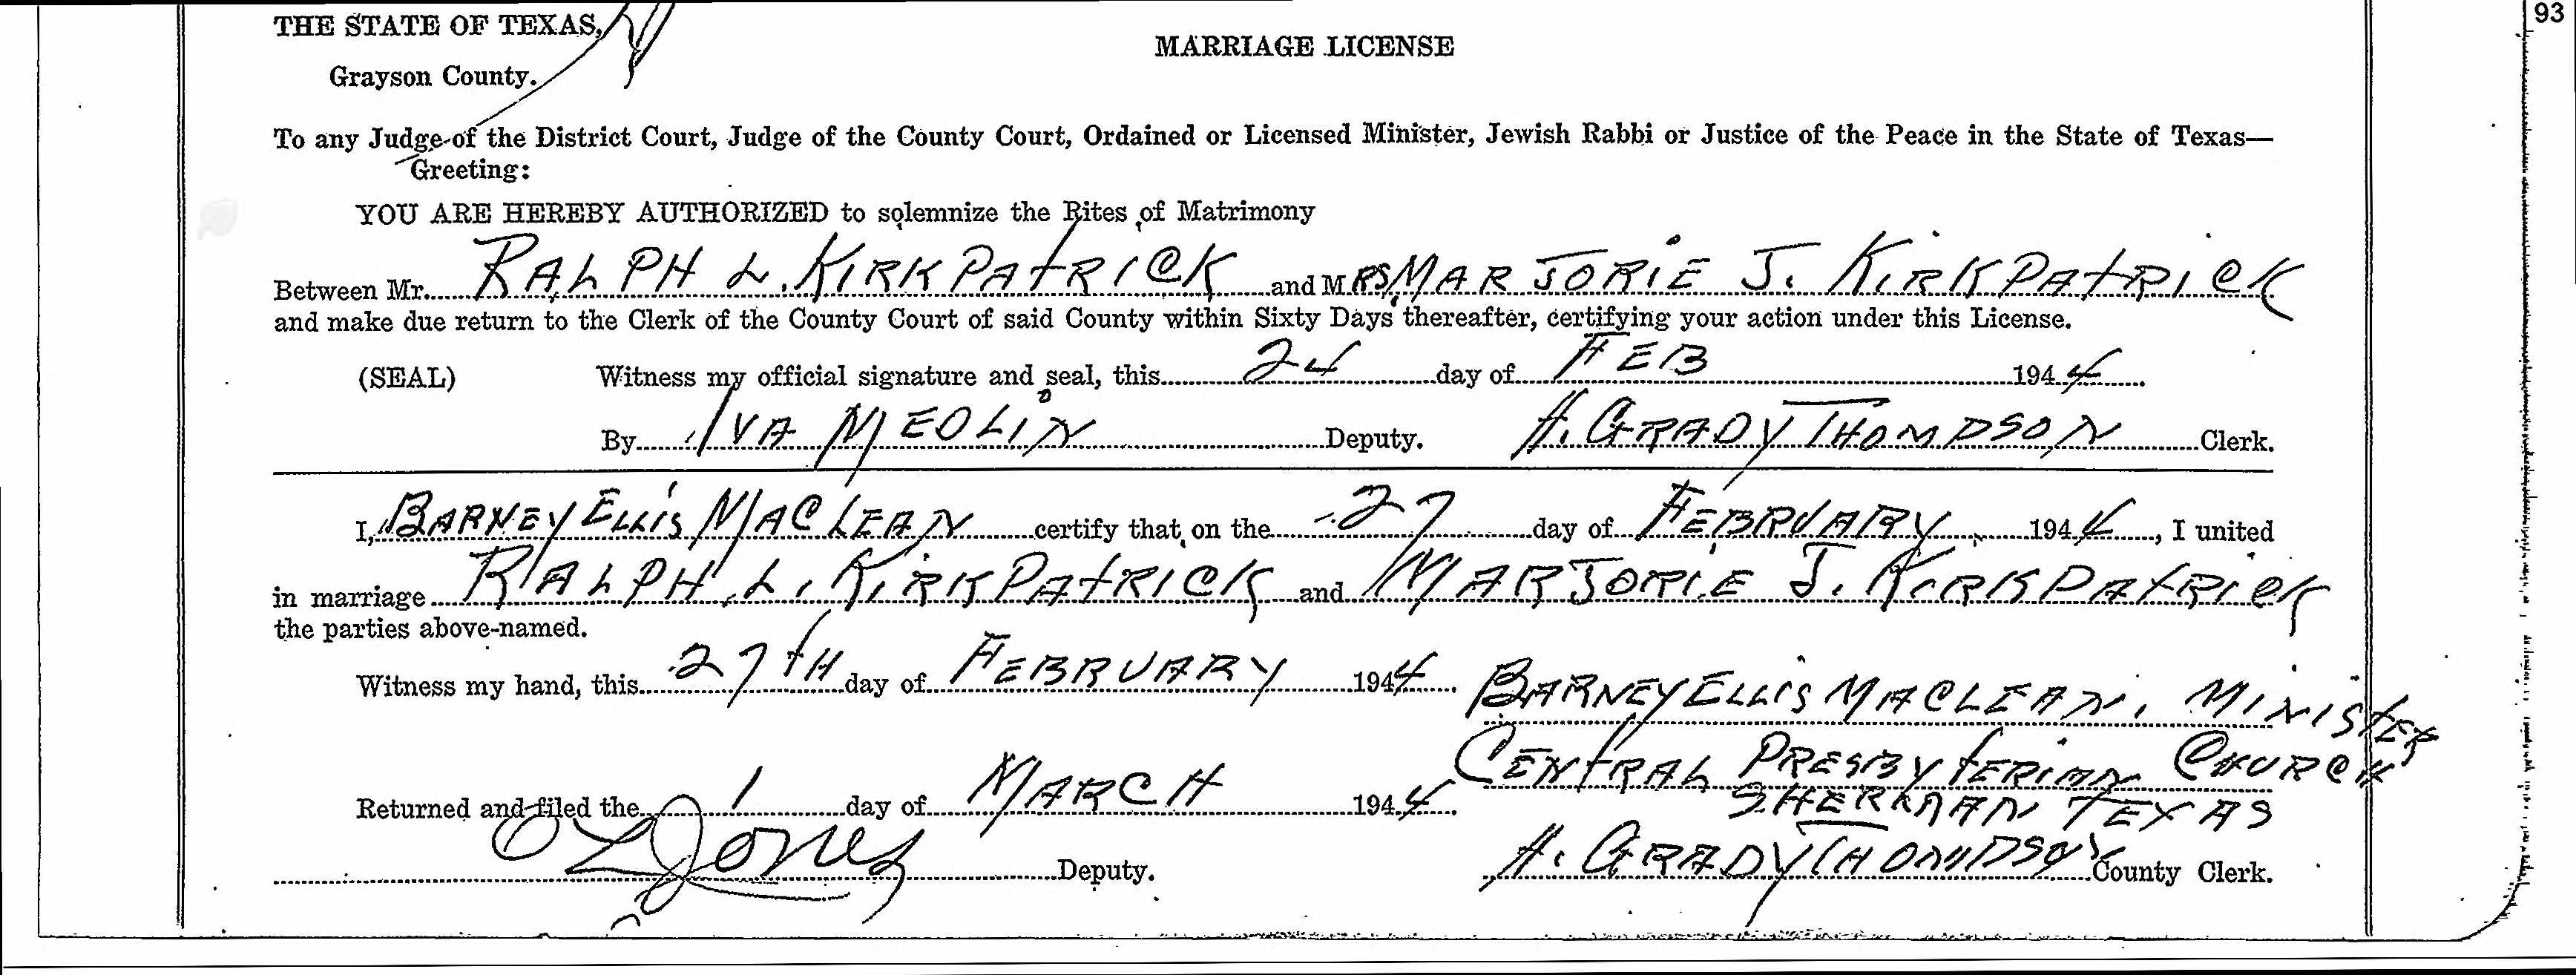 93
THE STATE OF TEXAS,
MARRIAGE LICENSE
Grayson County.
To any Judge of the District Court, Judge of the County Court, Ordained or Licensed Minister, Jewish Rabbi or Justice of the Peace in the State of Texas—
Greeting:
YOU ARE HEREBY AUTHORIZED to solemnize the Rites of Matrimony
Between Mr. RALPH L. KIRKPATRICK and MRS. MARJORIE J. KIRKPATRICK
and make due return to the Clerk of the County Court of said County within Sixty Days thereafter, certifying your action under this License.
(SEAL) Witness my official signature and seal, this 24 day of FEB 1944
By IVA MEDLIN Deputy. H. GRADY THOMPSON Clerk.
I, BARNEY ELLIS MACLEAN certify that on the 27 day of FEBRUARY 1944, I united
in marriage RALPH L. KIRKPATRICK and MARJORIE J. KIRKPATRICK
the parties above-named.
Witness my hand, this 27TH day of FEBRUARY 1944. BARNEY ELLIS MACLEAN, MINISTER
CENTRAL PRESBYTERIAN CHURCH
Returned and filed the 1 day of MARCH 1944. SHERMAN TEXAS
O L Jones Deputy. H. GRADY THOMPSON County Clerk.